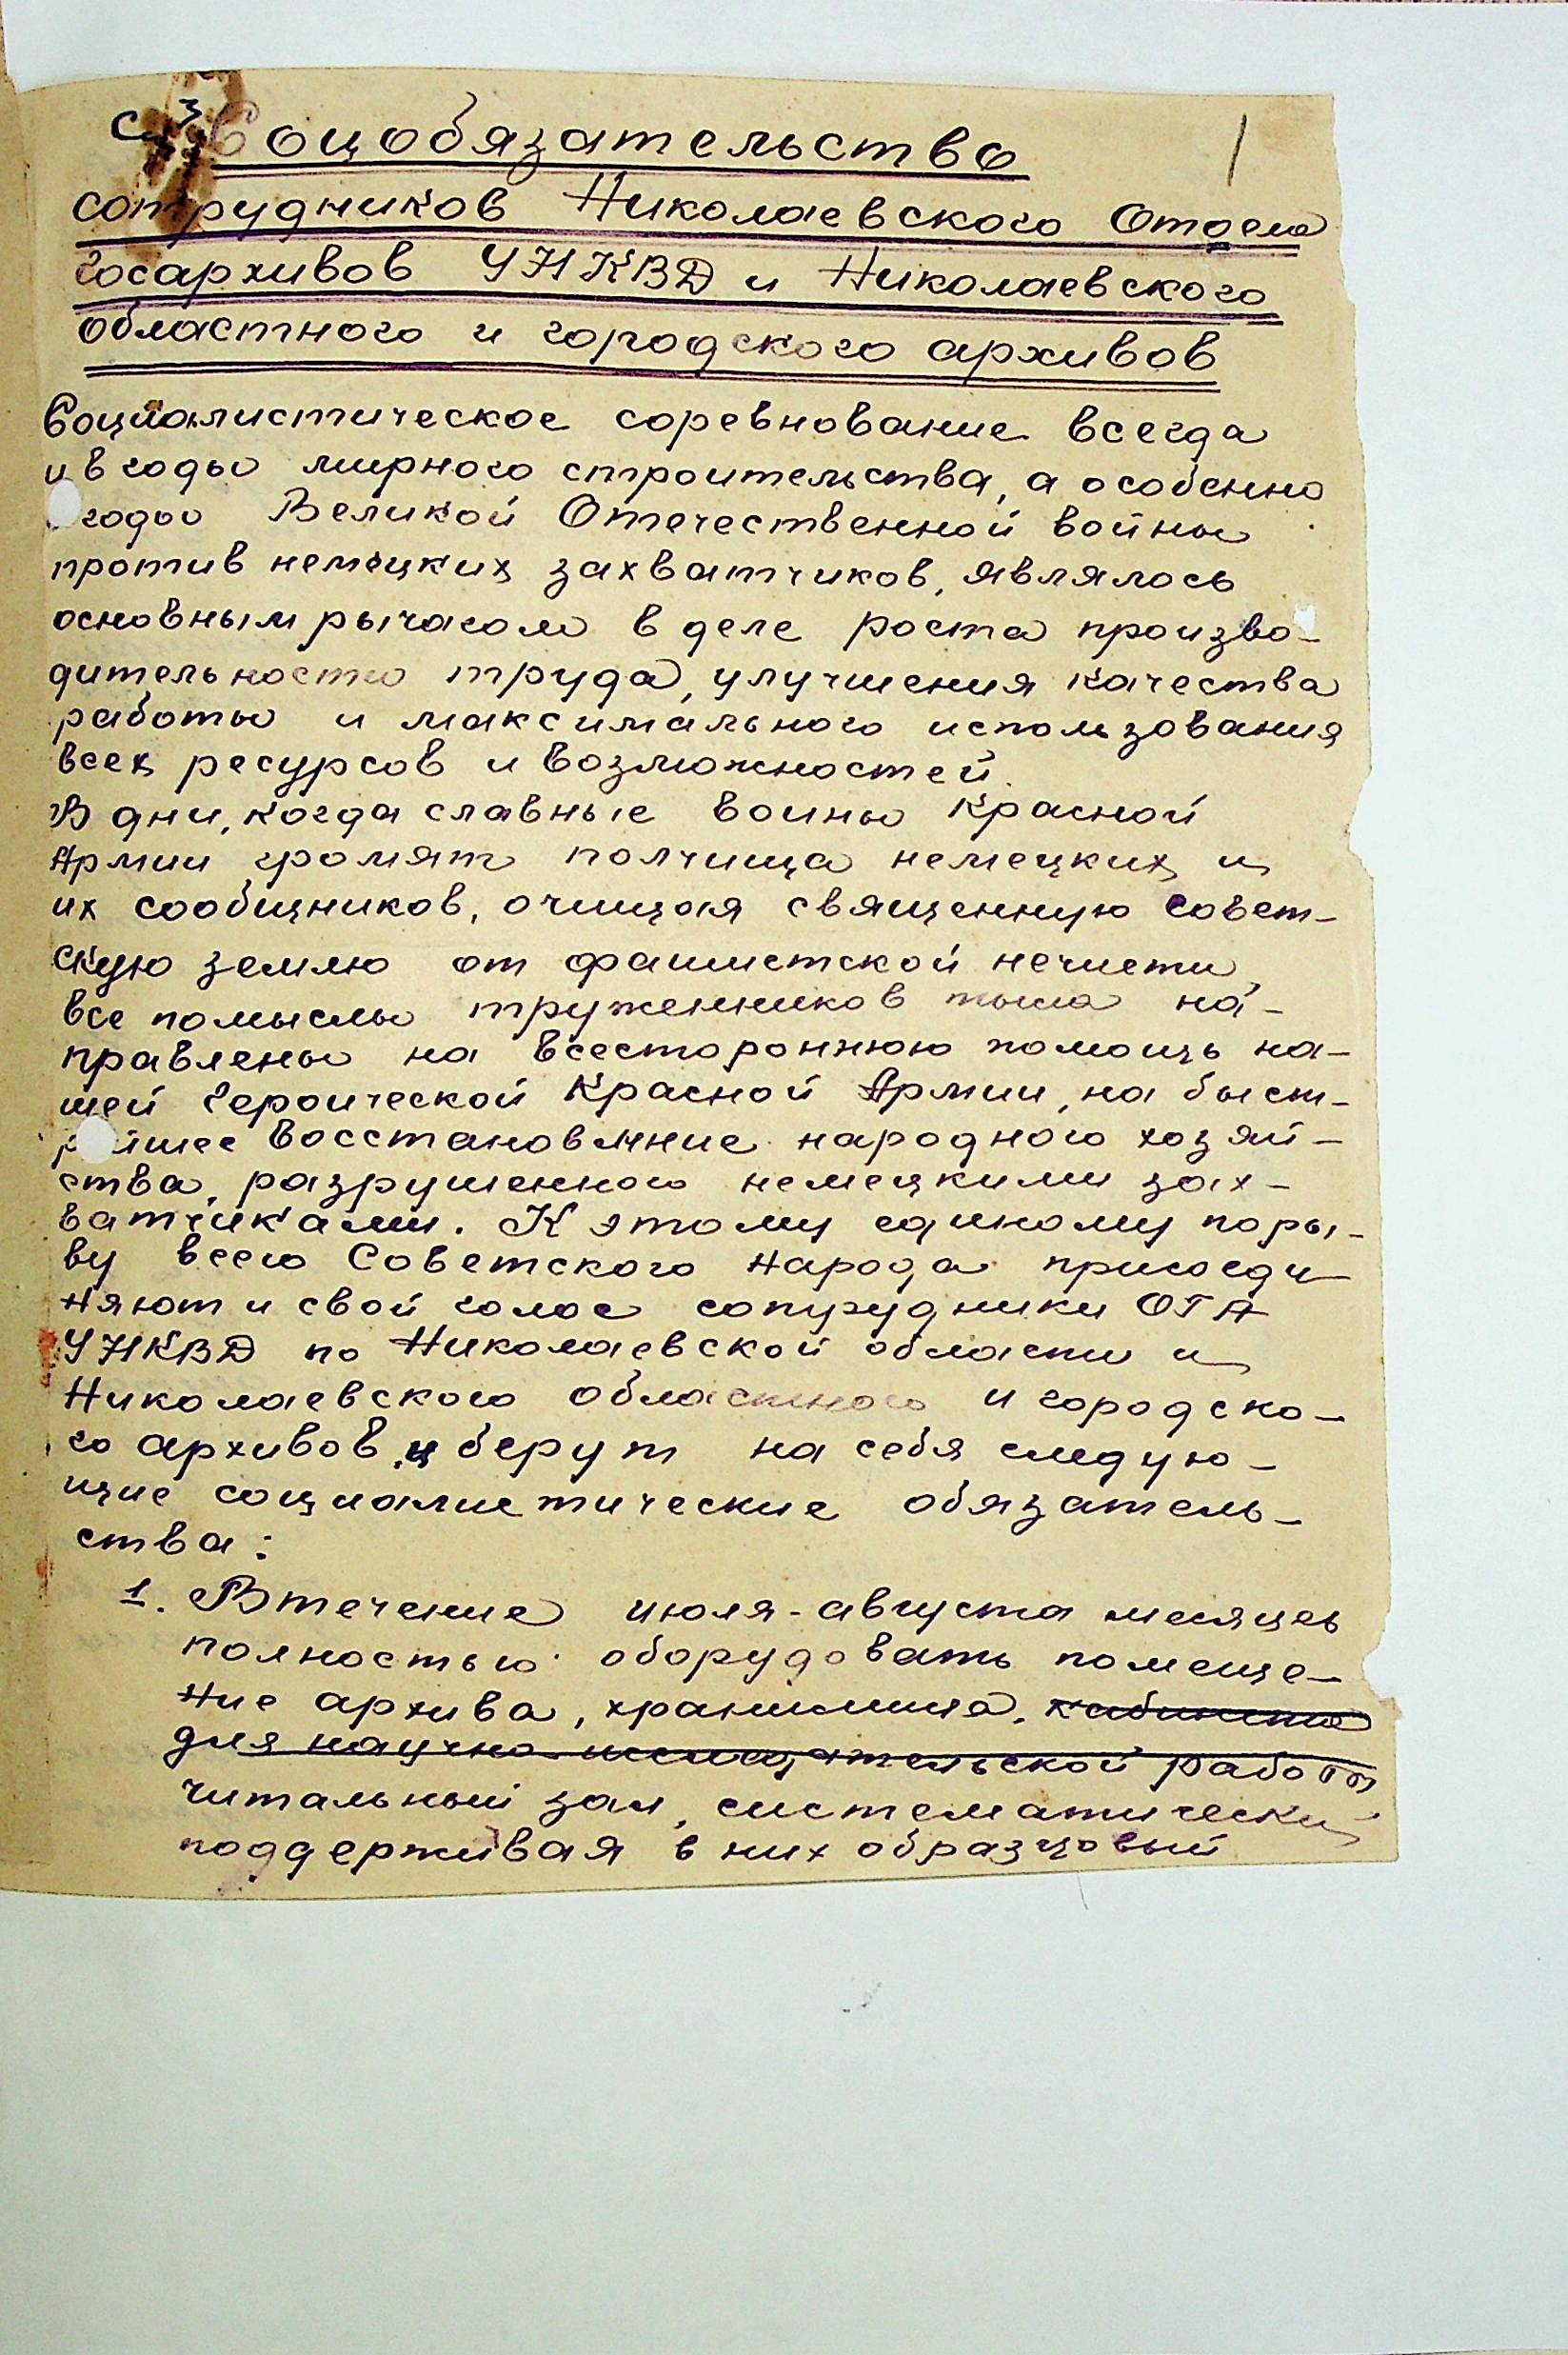 Соцобязательство
сотрудников Николаевского Отдела
госархивов УНКВД и Николаевского
областного и городского архивов
Социалистическое соревнование всегда
и в годы мирного строительства, а особенно
годы Великой Отечественной войны
против немецких захватчиков, являлось
основным рычагом в деле роста произво-
дительности труда, улучшения качества
работы и максимального использования
всех ресурсов и возможностей.
В дни, когда славные воины Красной
Армии громят полчища немецких и
их сообщников, очищая священную совет-
скую землю от фашистской нечисти,
все помыслы труженников тыла на-
правлены на всестороннюю помощь на-
шей героической Красной Армии, на быст-
рейшее восстановление народного хозяй-
ства, разрушенного немецкими зах-
ватчиками. К этому единому поры-
ву всего Советского народа присоеди
няют и свой голос сотрудники ОГА
УНКВД по Николаевской области и
Николаевского областного и городско-
го архивов и берут на себя следую-
щие социалистические обязатель-
ства:
1. В течение июля-августа месяцев
полностью оборудовать помеще-
ние архива, хранилища, кабинета
для научно-исследовательской работы
читальный зал, систематически
поддерживая в них образцовый